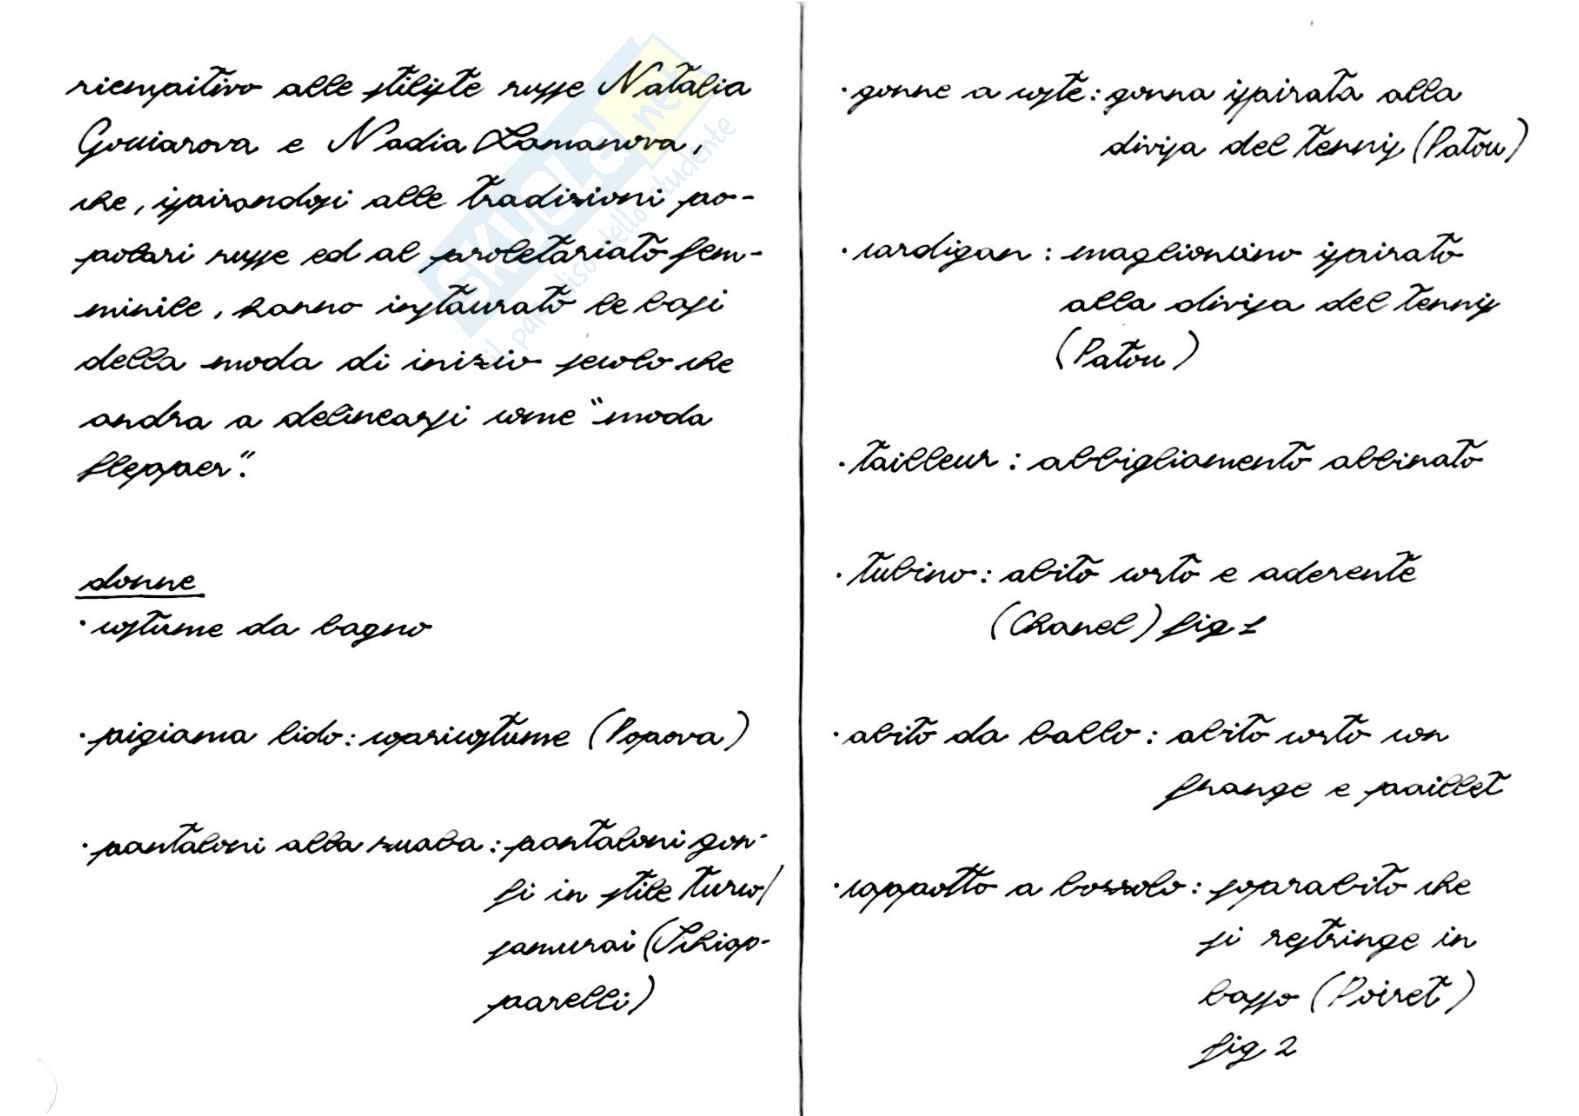 riempitivo alle stiliste russe Natalia
Gociarova e Nadia Lamanova,
che, ispirandosi alle tradizioni po-
polari russe ed al proletariato fem-
minile, hanno instaurato le basi
della moda di inizio secolo che
andra a delinearsi come "moda
flepper".
donne
· costume da bagno
· pigiama lido: copricostume (Popova)
· pantaloni alla zuaba: pantaloni gon-
fi in stile turco/
samurai (Schiap-
parelli)
· gonne a coste: gonna ispirata alla
divisa del tennis (Patou)
· cardigan: maglioncino ispirato
alla divisa del tennis
(Patou)
· tailleur: abbigliamento abbinato
· tubino: abito corto e aderente
(Chanel) fig 1
· abito da ballo: abito corto con
frange e paillet
· cappotto a bozzolo: soprabito che
si restringe in
basso (Poiret)
fig 2
SKUOLA.net
il paradiso dello studente